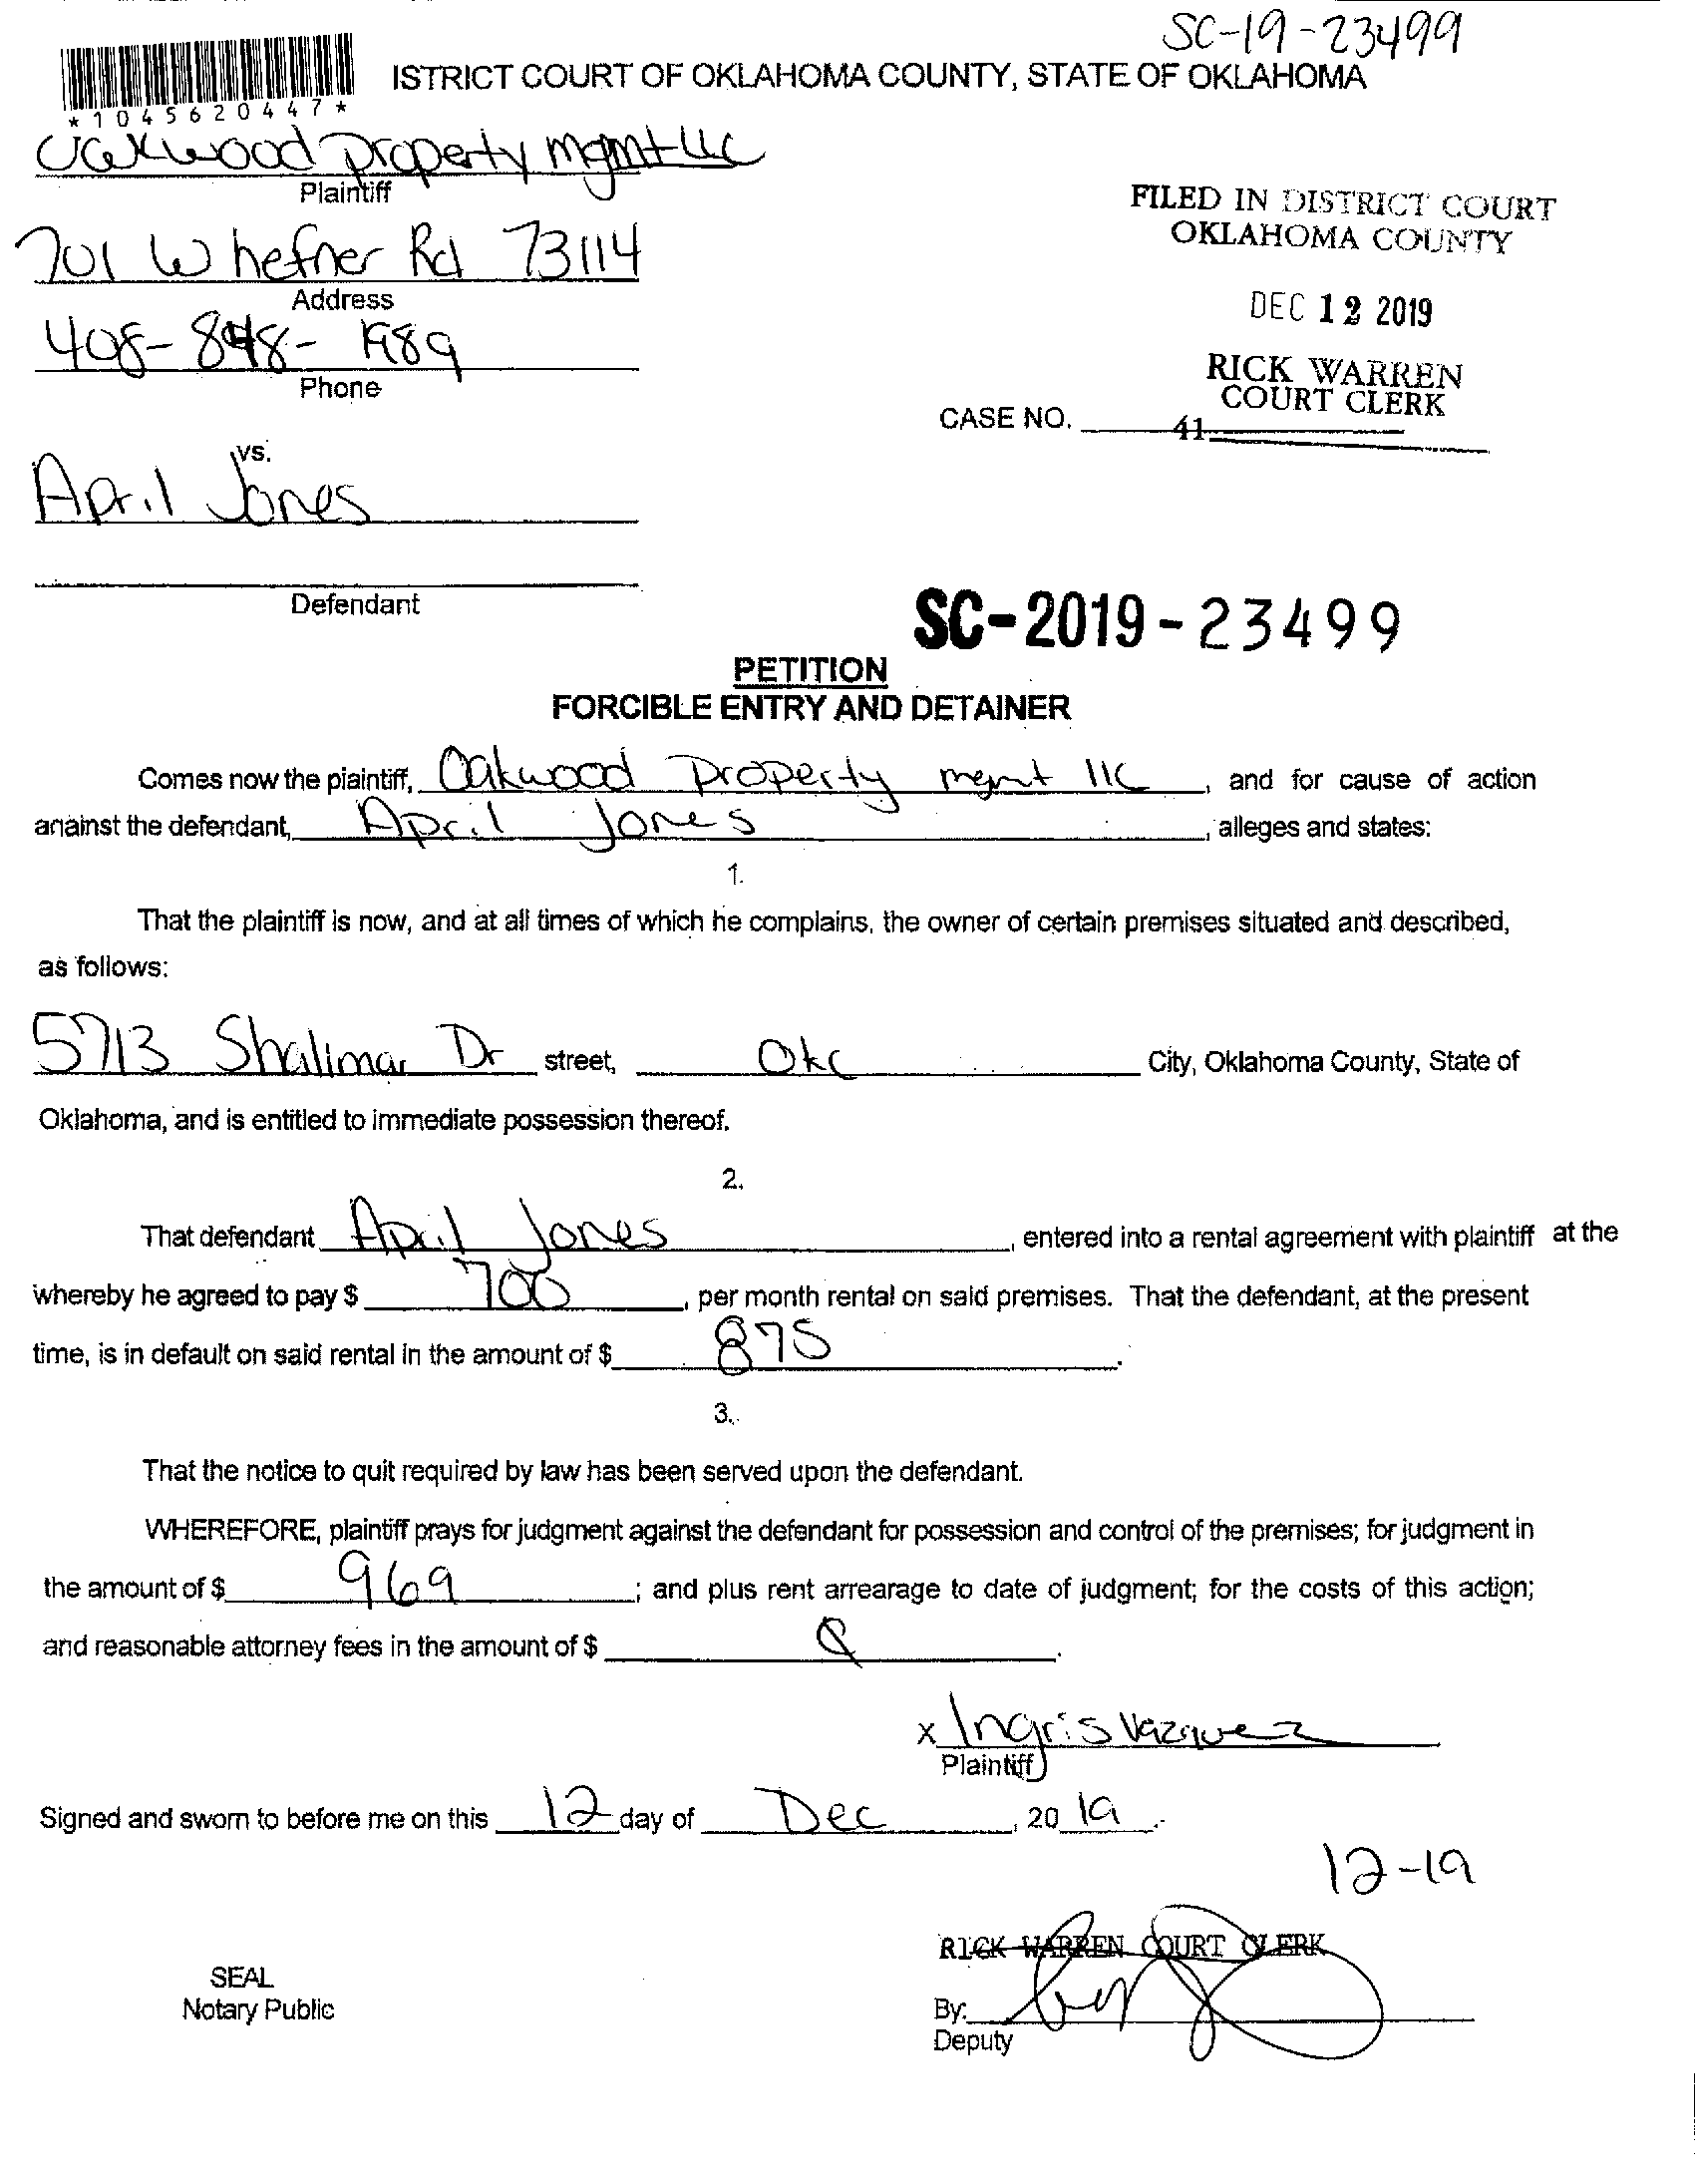 SC-19-23499
ISTRICT COURT OF OKLAHOMA COUNTY, STATE OF OKLAHOMA
*1045620447*
Oakwood property mgmt llc
Plaintiff
701 W hefner Rd 73114
Address
408-848-1989
Phone
FILED IN DISTRICT COURT
OKLAHOMA COUNTY
DEC 12 2019
RICK WARREN
COURT CLERK
CASE NO. 41
vs.
April Jones
Defendant
SC-2019-23499
PETITION
FORCIBLE ENTRY AND DETAINER
Comes now the plaintiff, Oakwood property mgmt llc, and for cause of action
against the defendant, April Jones, alleges and states:
1.
That the plaintiff is now, and at all times of which he complains, the owner of certain premises situated and described,
as follows:
5713 Shalimar Dr street, Okc City, Oklahoma County, State of
Oklahoma, and is entitled to immediate possession thereof.
2.
That defendant April Jones, entered into a rental agreement with plaintiff at the
whereby he agreed to pay $ 700, per month rental on said premises. That the defendant, at the present
time, is in default on said rental in the amount of $ 875.
3.
That the notice to quit required by law has been served upon the defendant.
WHEREFORE, plaintiff prays for judgment against the defendant for possession and control of the premises; for judgment in
the amount of $ 969; and plus rent arrearage to date of judgment; for the costs of this action;
and reasonable attorney fees in the amount of $
x Ingris Vazquez
Plaintiff
Signed and sworn to before me on this 12 day of Dec, 2019.
12-19
RICK WARREN COURT CLERK
SEAL
Notary Public
By:
Deputy